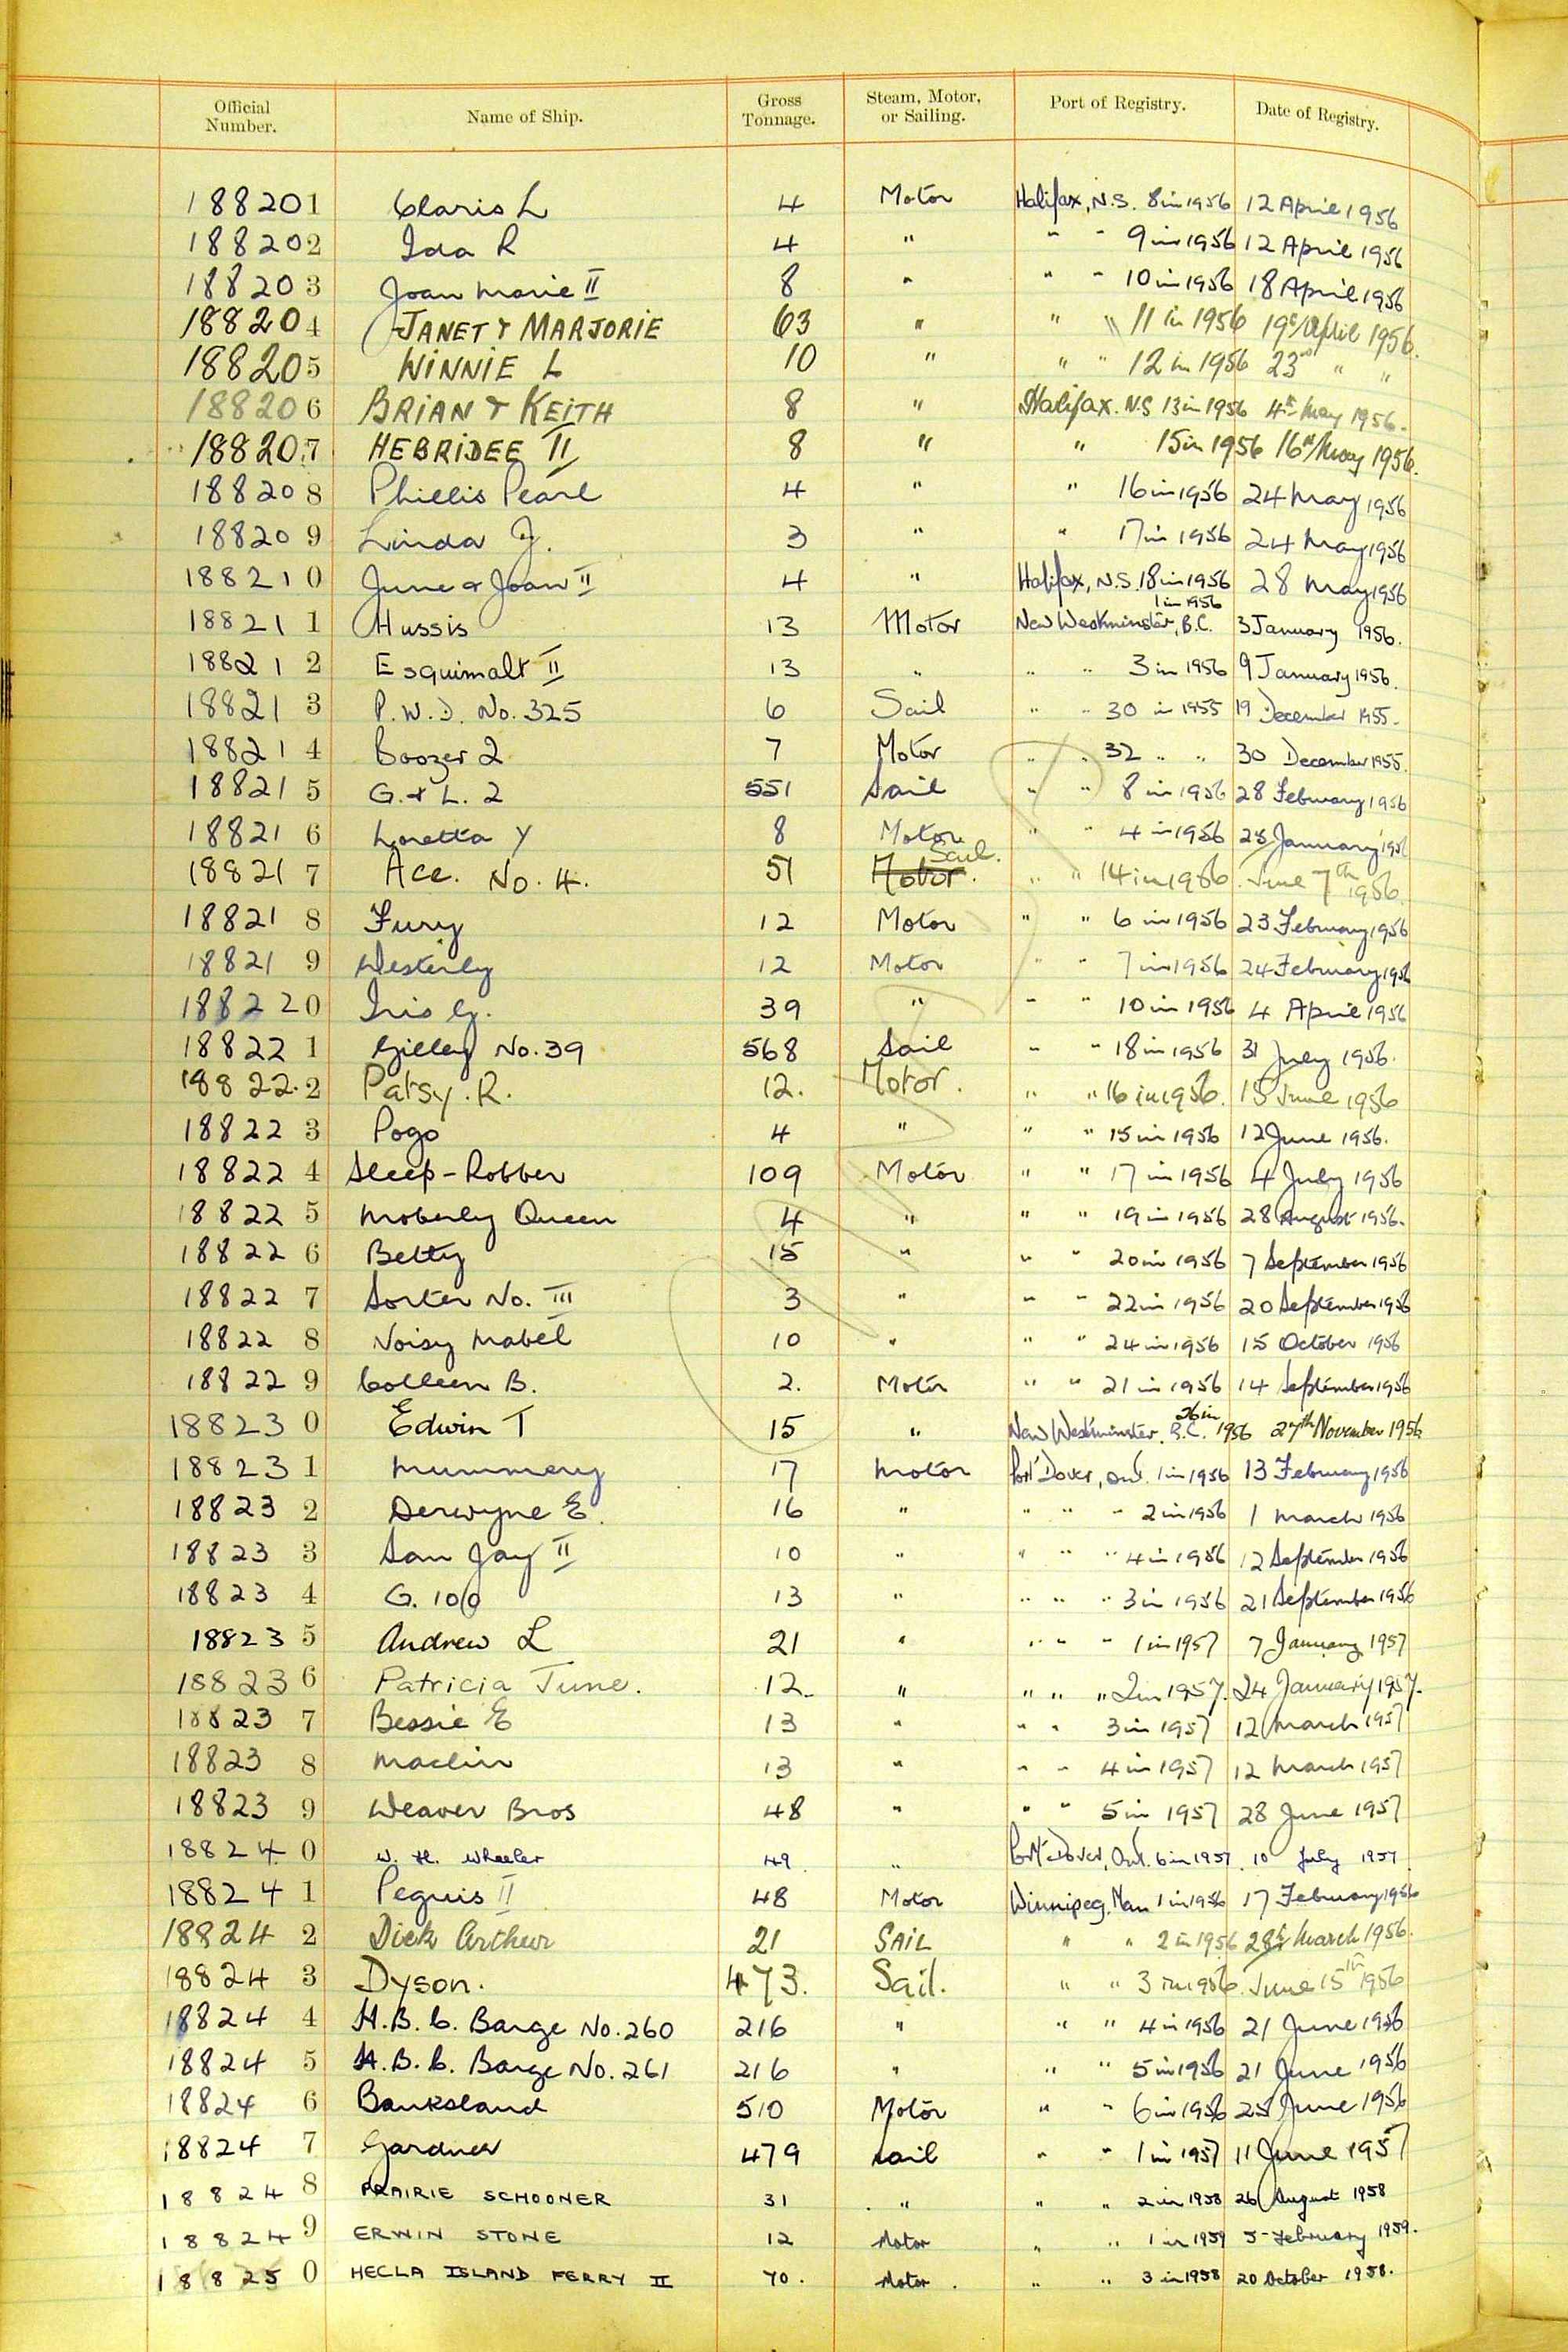 Official Number. Name of Ship. Gross Tonnage. Steam, Motor, or Sailing. Port of Registry. Date of Registry.
188201 Claris L 4 Motor Halifax, N.S. 8 in 1956 12 April 1956
188202 Ida R 4 " " " 9 in 1956 12 April 1956
188203 Joan Marie II 8 " " " 10 in 1956 18 April 1956
188204 JANET & MARJORIE 63 " " " 11 in 1956 19th April 1956.
188205 WINNIE L 10 " " " 12 in 1956 23rd " "
188206 BRIAN & KEITH 8 " Halifax. N.S 13 in 1956 4th May 1956.
188207 HEBRIDEE II 8 " " 15 in 1956 16th May 1956.
188208 Phillis Pearl 4 " " 16 in 1956 24 May 1956
188209 Linda J. 3 " " 17 in 1956 24 May 1956
188210 June & Joan II 4 " Halifax, N.S. 18 in 1956 28 May 1956
188211 Hussis 13 Motor New Westminster, B.C. 1 in 1956 3 January 1956.
188212 Esquimalt II 13 " " " 3 in 1956 9 January 1956.
188213 P.W.D. No. 325 6 Sail " " 30 in 1955 19 December 1955.
188214 Boozer 2 7 Motor " " 32 " " 30 December 1955.
188215 G. & L. 2 551 Sail " " 8 in 1956 28 February 1956
188216 Loretta Y 8 Motor " " 4 in 1956 January 1956
188217 Ace. No. 4. 51 Motor. Sail. " " 14 in 1956. June 7th 1956.
188218 Fury 12 Motor " " 6 in 1956 23 February 1956
188219 Westerly 12 Motor " " 7 in 1956 24 February 1956
188220 Iris G. 39 " " " 10 in 1956 4 April 1956
188221 Gilley No. 39 568 Sail " " 18 in 1956 31 July 1956.
188222 Patsy. R. 12. Motor. " " 16 in 1956. 15 June 1956
188223 Pogo 4 " " " 15 in 1956 12 June 1956.
188224 Sleep-Robber 109 Motor " " 17 in 1956 4 July 1956
188225 Moberly Queen 4 " " " 19 in 1956 28 August 1956.
188226 Betty 15 " " " 20 in 1956 7 September 1956
188227 Sorter No. III 3 " " " 22 in 1956 20 September 1956
188228 Noisy Mabel 10 " " " 24 in 1956 15 October 1956
188229 Colleen B. 2. Motor " " 21 in 1956 14 September 1956
188230 Edwin T 15 " New Westminster, B.C. 26 in 1956 27th November 1956
188231 Mummery 17 Motor Port Dover, Ont. 1 in 1956 13 February 1956
188232 Derwyne E. 16 " " " " 2 in 1956 1 March 1956
188233 San Jay II 10 " " " " 4 in 1956 12 September 1956
188234 G. 100 13 " " " " 3 in 1956 21 September 1956
188235 Andrew L 21 " " " " 1 in 1957 7 January 1957
188236 Patricia June. 12. " " " " 2 in 1957. 24 January 1957.
188237 Bessie E 13 " " " 3 in 1957 12 March 1957
188238 Maclin 13 " " " 4 in 1957 12 March 1957
188239 Weaver Bros 48 " " " 5 in 1957 28 June 1957
188240 W. H. Wheeler 49 " Port Dover, Ont. 6 in 1957. 10 July 1957
188241 Peguis II 48 Motor Winnipeg, Man 1 in 1956 17 February 1956
188242 Dick Arthur 21 SAIL " " 2 in 1956 28th March 1956.
188243 Dyson. 473. Sail. " " 3 in 1956. June 15th 1956
188244 H.B.C. Barge No. 260 216 " " " 4 in 1956 21 June 1956
188245 H.B.C. Barge No. 261 216 " " " 5 in 1956 21 June 1956
188246 Banksland 510 Motor " " 6 in 1956 25 June 1956
188247 Gardner 479 Sail " " 1 in 1957 11 June 1957
188248 PRAIRIE SCHOONER 31 " " " 2 in 1958 26 August 1958
188249 ERWIN STONE 12 Motor " " 1 in 1959 5 February 1959.
188250 HECLA ISLAND FERRY II 70. Motor. " " 3 in 1958 20 October 1958.